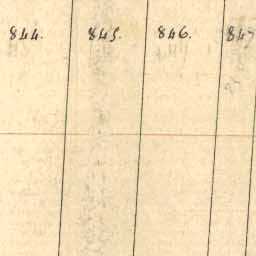 844. 845. 846. 847